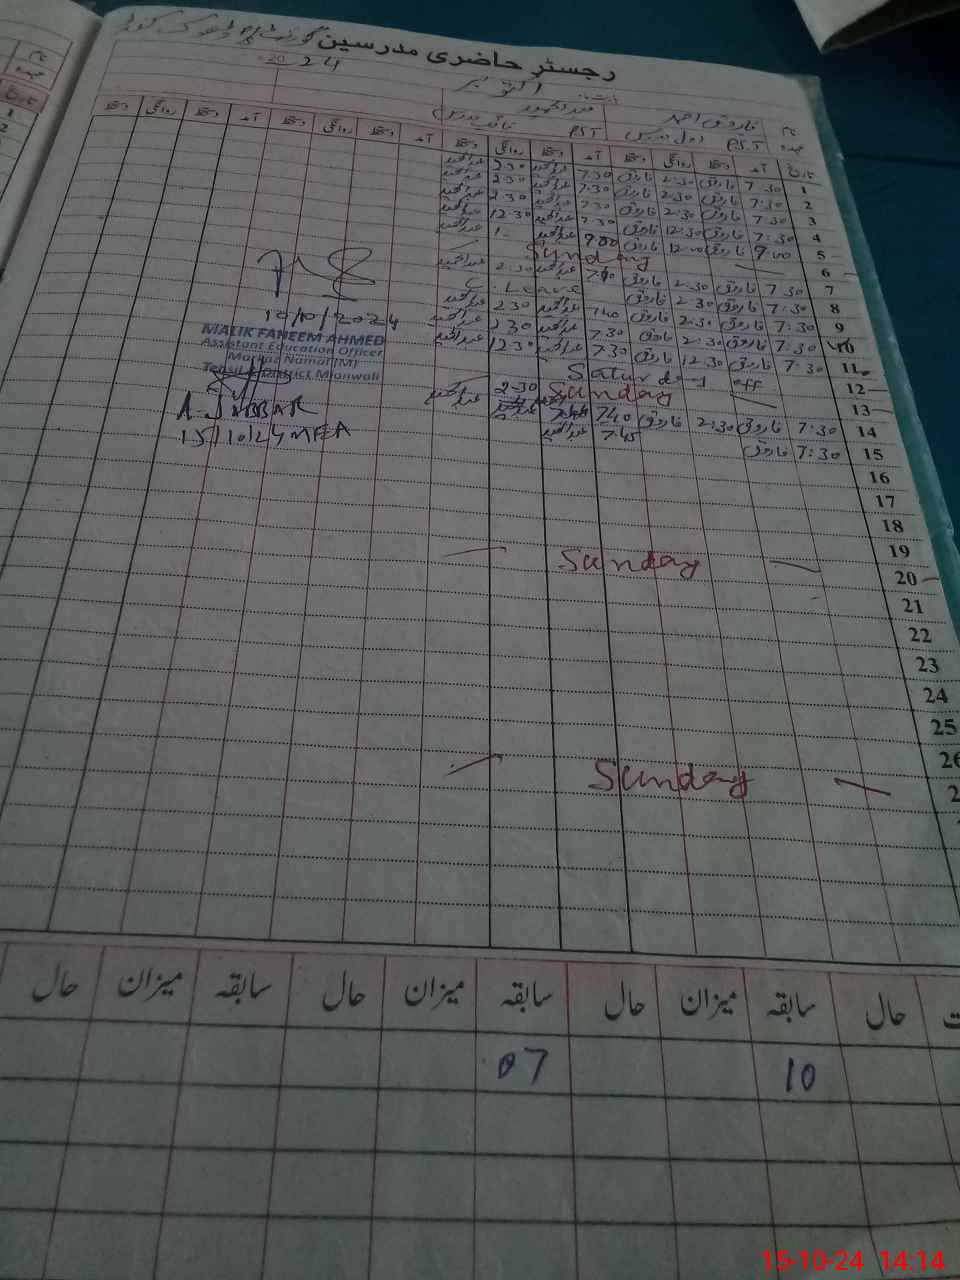 رجسٹر حاضری مدرسین گورنمنٹ
اکتوبر 2024
نام فاروق احمد
عہدہ P.S.T اول مدرس P.S.T نائب مدرس
تاریخ آمد دستخط روانگی دستخط آمد دستخط روانگی دستخط آمد دستخط روانگی دستخط آمد دستخط روانگی دستخط
1 7:30 فاروق 2:30 فاروق 7:30 2:30
2 7:30 فاروق 2:30 فاروق 7:30 2:30
3 7:30 فاروق 2:30 فاروق 7:30 2:30
4 7:30 فاروق 12:30 فاروق 7:30 12:30
5 9:00 فاروق 12:00 فاروق 9:00 1-
6 Sunday
7 7:30 فاروق 2:30 فاروق 7:40 2:30
8 7:30 فاروق 2:30 فاروق C. Leave
9 7:30 فاروق 2:30 فاروق 7:40 2:30
10 7:30 فاروق 2:30 فاروق 7:30 2:30
11 7:30 فاروق 12:30 فاروق 7:30 12:30
12 Saturday off
13 Sunday
14 7:30 فاروق 2:30 فاروق 7:40 2:30
15 7:30 فاروق 7:45
16
17
18
19
20 Sunday
21
22
23
24
25
26
Sunday
10/10/2024
MALIK FAHEEM AHMED
Assistant Education Officer
Markaz Namal (M)
Tehsil & District Mianwali
A. JABBAR
15/10/24 MEA
حال سابقہ میزان حال سابقہ میزان حال سابقہ میزان حال
10 07
15-10-24 14:14